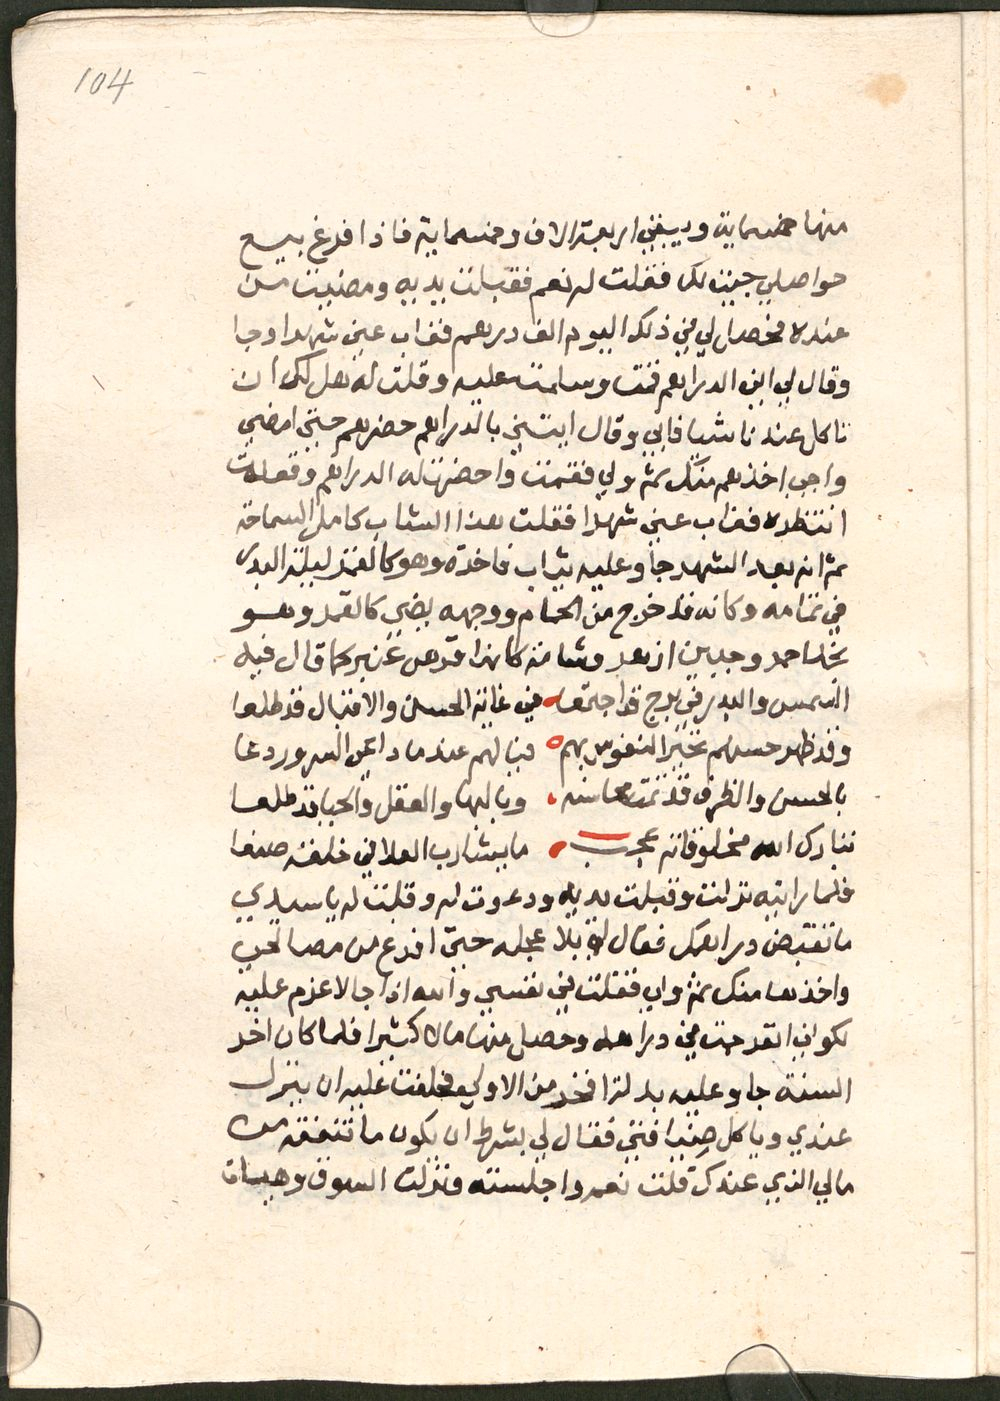 104
منها خمسماية ويبقي اربعة الاف وخمسماية فاذا فرغ بيع
حواصلي جيت لك فقلت له نعم فقبلت يديه ومضيت من
عنده فحصل لي في ذلك اليوم الف درهم فغاب عني شهرا وجا
وقال لي اين الدراهم فقمت وسلمت عليه وقلت له هل لك ان
تاكل عندنا شيا فابي وقال ايتيني بالدراهم حضرهم حتي امضي
واجي اخذهم منك ثم ولي فقمت واحضرت له الدراهم وقعدت
انتظره فغاب عني شهرا فقلت هذا الشاب كامل السماحة
ثم انه بعد الشهر جا وعليه ثياب فاخرة وهو كالقمر ليلة البدر
في تمامه وكانه قد خرج من الحمام ووجهه يضي كالقمر وهو
بخد احمر وجبين ازهر وشامة كانها قرص عنبر كما قال فيه
الشمس والبدر في برج قد اجتمعا في غاية الحسن والاقبال قد طلعا
وقد ظهر حسنهم تحير النفوس بهم فيالهم عندما داعي السرور دعا
بالحسن والظرف قد تمت محاسنه وبالبها والعقل والحيا قد طلعا
تبارك الله مخلوقاته عجب ما يشا رب العلا في خلقه صنعا
فلما رايته نزلت وقبلت يديه ودعوت له وقلت له يا سيدي
ما تقبض دراهمك فقال لي بلا عجله حتي افرغ من مصالحي
واخذها منك ثم ولي فقلت في نفسي والله اذا جا لاعزم عليه
لكوني انقرحت في دراهمه وحصل منها مالا كثيرا فلما كان اخر
السنة جا وعليه بدلة افخر من الاولي فحلفت عليه ان ينزل
عندي وياكل ضيافتي فقال لي بشرط ان يكون ما تنفقه من
مالي الذي عندك قلت نعم واجلسته ونزلت السوق وهيات